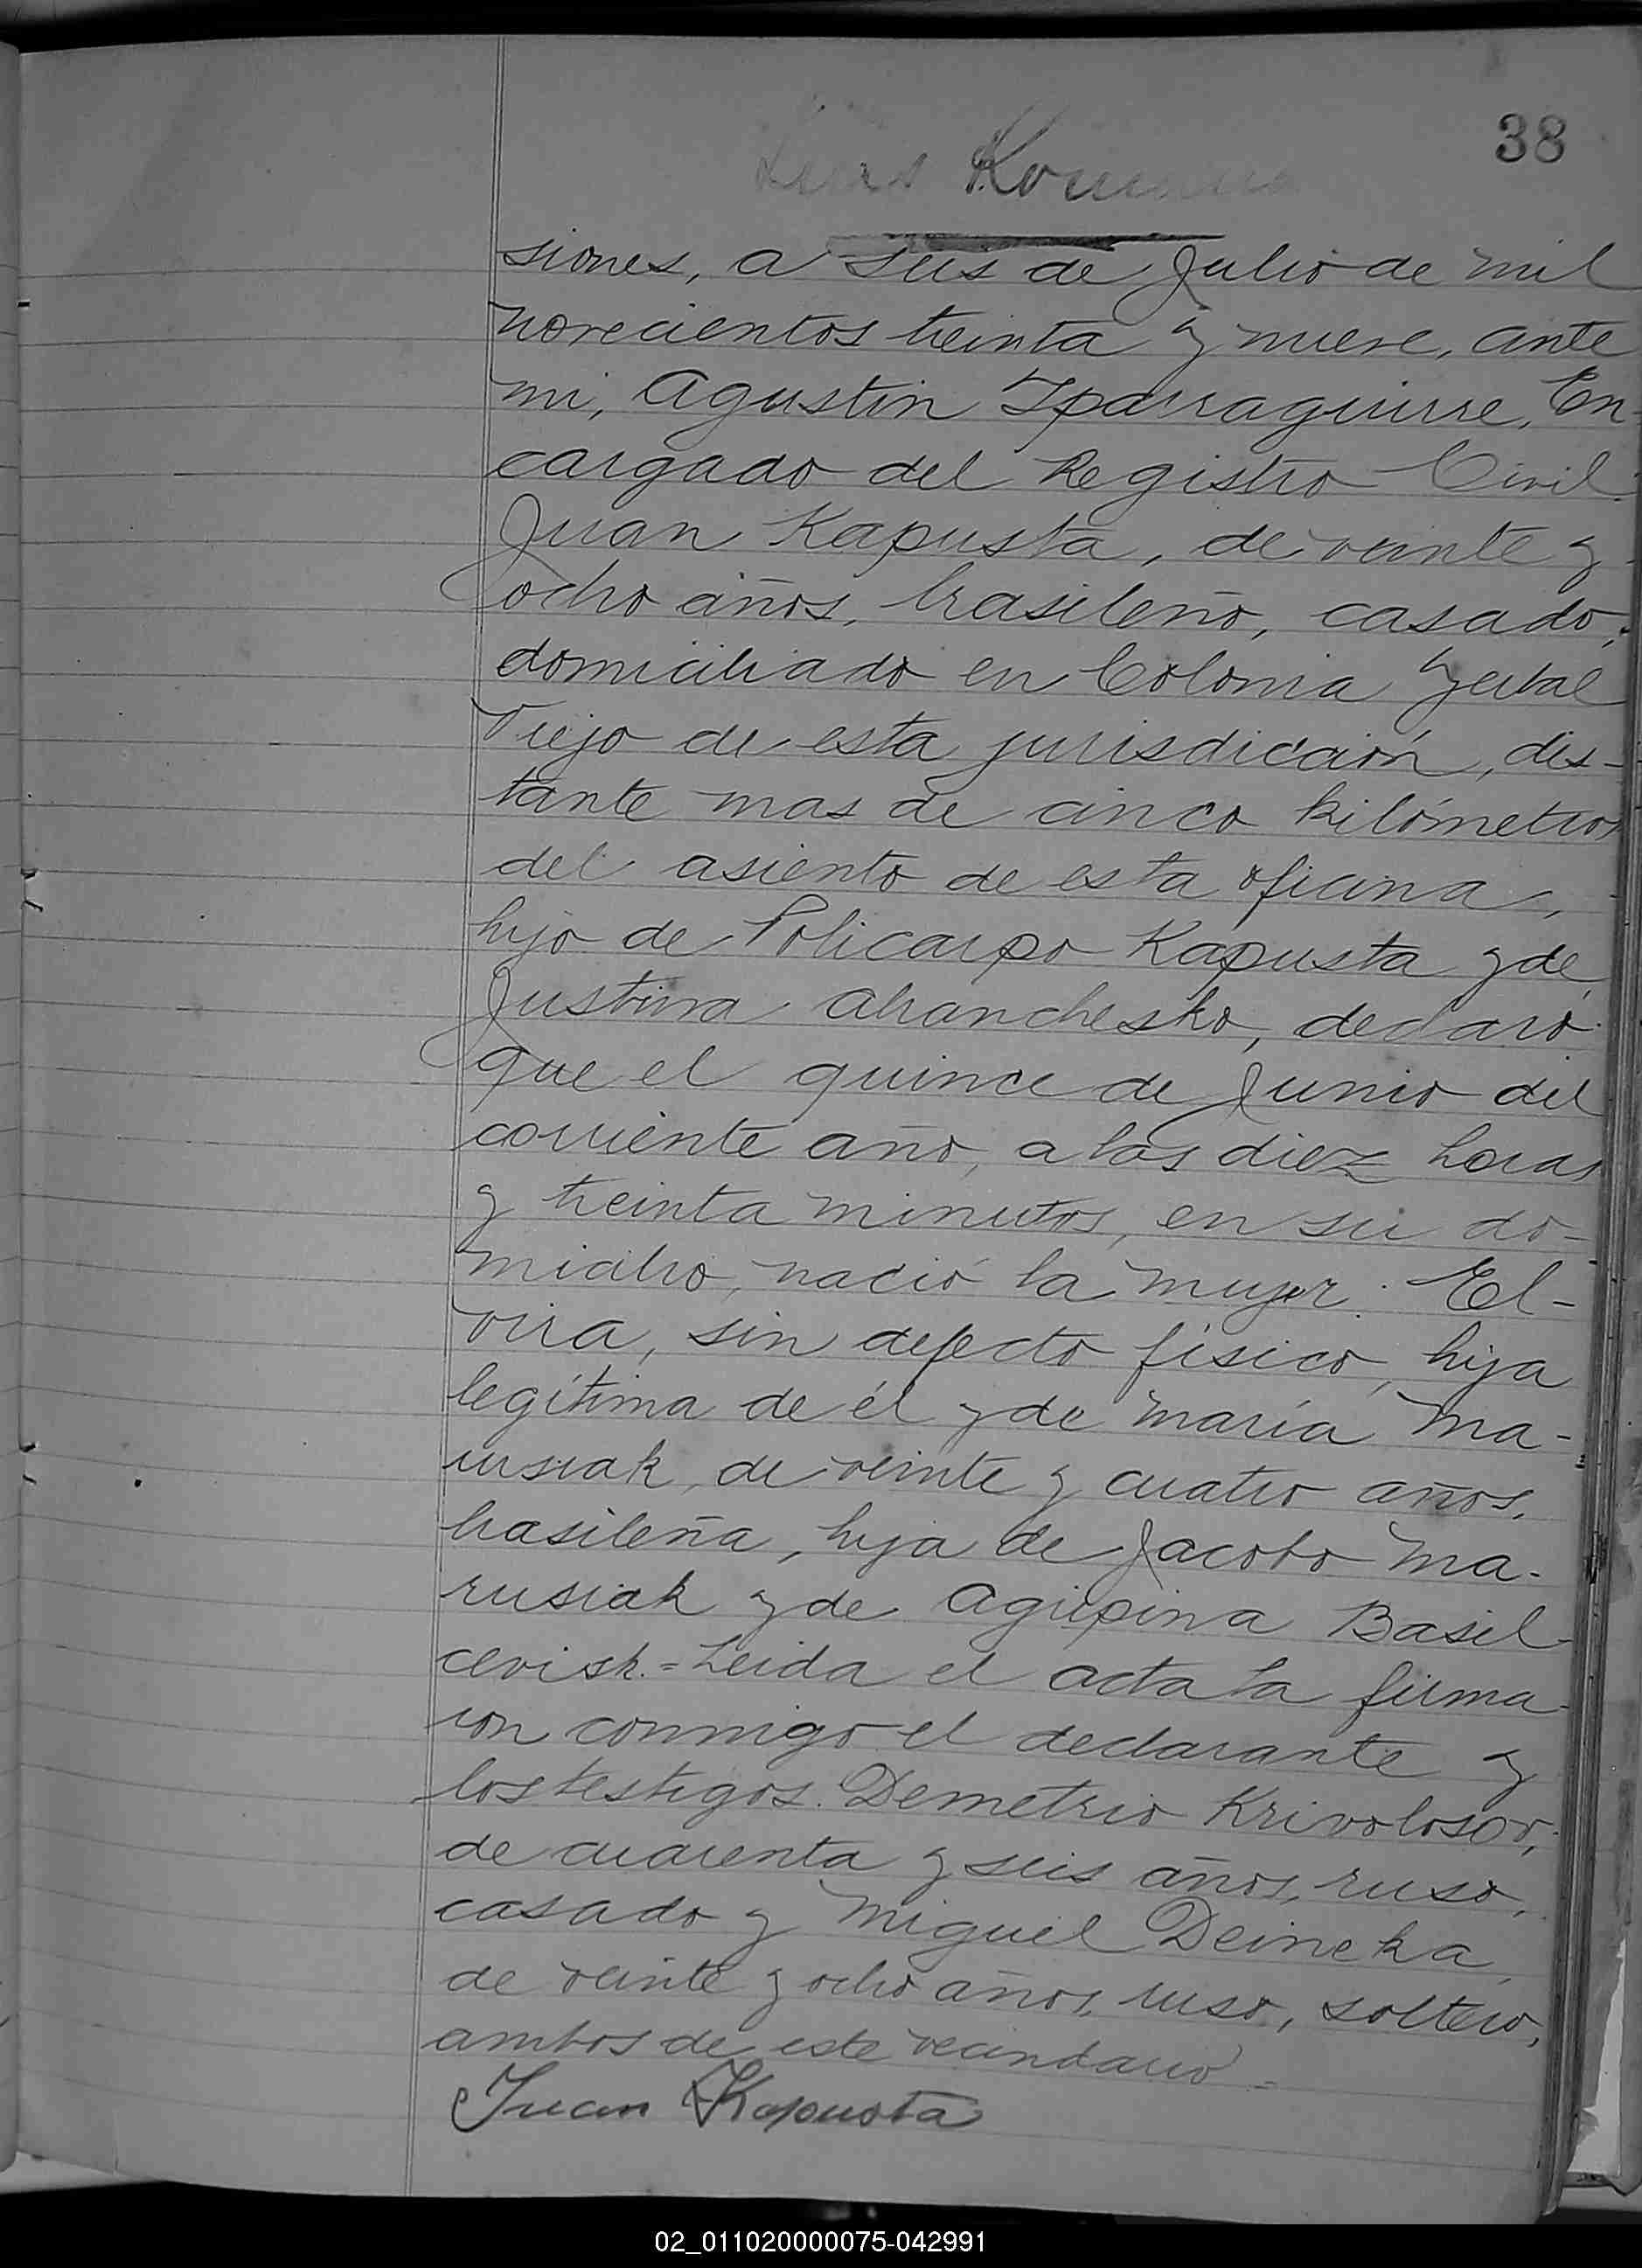 38
siones, a seis de Julio de mil
novecientos treinta y nueve, ante
mi, Agustin Yparraguirre, En-
cargado del Registro Civil.
Juan Kapusta, de veinte y
ocho años, brasileño, casado,
domiciliado en Colonia Yerbal
Viejo de esta jurisdicción, dis-
tante mas de cinco kilómetros
del asiento de esta oficina,
hijo de Policarpo Kapusta y de
Justina declaró
que el quince de Junio del
corriente año, a las diez horas
y treinta minutos, en su do-
micilio, nació la mujer: El-
vira, sin defecto físico, hija
legítima de él y de María Ma-
rusiak, de veinte y cuatro años,
brasileña, hija de Jacobo Ma-
rusiak y de Agripina Basil-
cevisk.=Leida el acta la firma-
ron conmigo el declarante y
los testigos: Demetrio Krivolosov,
de cuarenta y seis años, ruso,
casado y Miguel Deineka,
de veinte y ocho años, ruso, soltero,
ambos de este vecindario=
Juan Kapusta
02_011020000075-042991